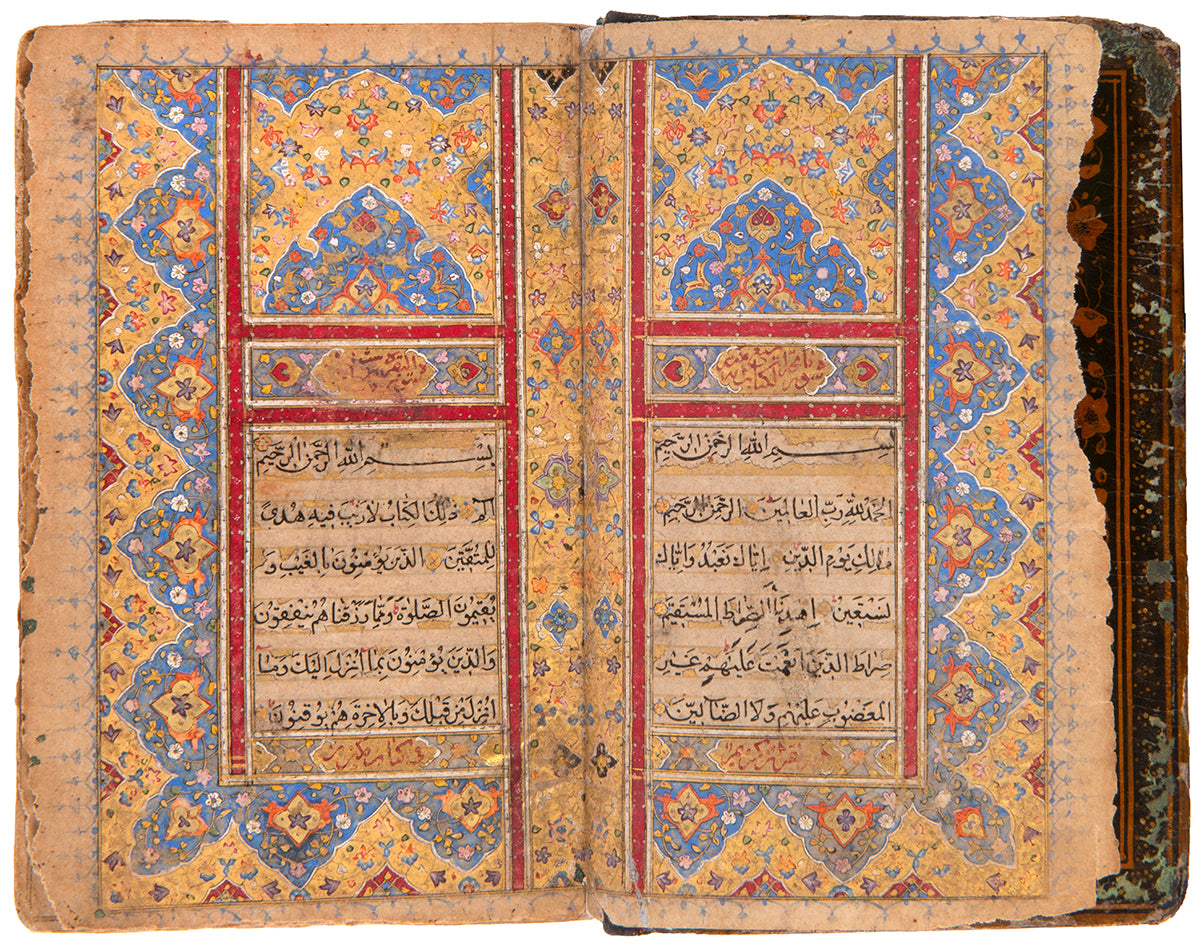 سورة فاتحة الكتاب
بِسْمِ اللهِ الرَّحْمٰنِ الرَّحِيمِ
اَلْحَمْدُ لِلّٰهِ رَبِّ الْعَالَمِينَ الرَّحْمٰنِ الرَّحِيمِ
مَالِكِ يَوْمِ الدِّينِ اِيَّاكَ نَعْبُدُ وَاِيَّاكَ
نَسْتَعِينُ اِهْدِنَا الصِّرَاطَ الْمُسْتَقِيمَ
صِرَاطَ الَّذِينَ اَنْعَمْتَ عَلَيْهِمْ غَيْرِ
الْمَغْضُوبِ عَلَيْهِمْ وَلَا الضَّالِّينَ
انه لقرآن كريم
سورة البقرة
بِسْمِ اللهِ الرَّحْمٰنِ الرَّحِيمِ
الٓمٓ ذٰلِكَ الْكِتَابُ لَا رَيْبَ فِيهِ هُدًى
لِلْمُتَّقِينَ الَّذِينَ يُؤْمِنُونَ بِالْغَيْبِ وَ
يُقِيمُونَ الصَّلٰوةَ وَمِمَّا رَزَقْنَاهُمْ يُنْفِقُونَ
وَالَّذِينَ يُؤْمِنُونَ بِمَا اُنْزِلَ اِلَيْكَ وَمَا
اُنْزِلَ مِنْ قَبْلِكَ وَبِالْاٰخِرَةِ هُمْ يُوقِنُونَ
في كتاب مكنون